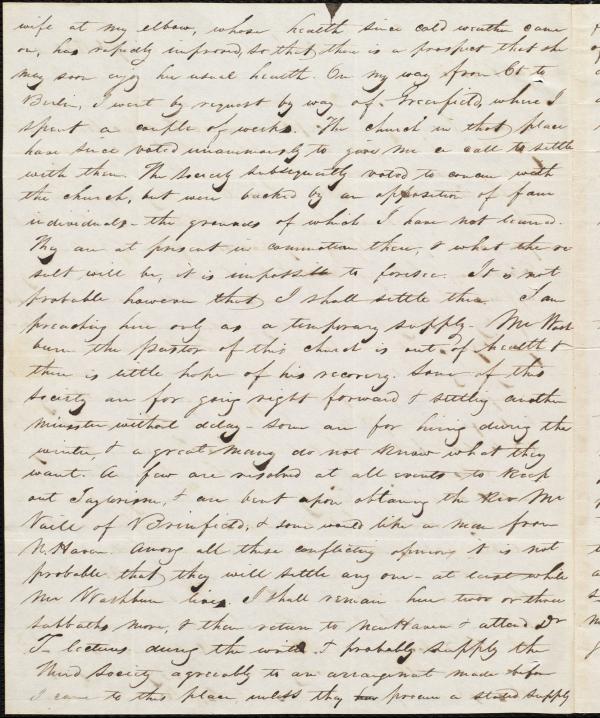 wife at my elbow, whose health since cold weather came
on, has rapidly improved, so that there is a prospect that she
may soon enjoy her usual health. On my way from Ct to
Berlin, I went by request by way of Greenfield, where I
spent a couple of weeks. The church in that place
have since voted unanimously to give me a call to settle
with them. The Society subsequently voted to concur with
the church, but were backed by an opposition of four
individuals - the grounds of which I have not learned.
They are at present in commotion there, & what the re
sult will be, it is impossible to foresee. It is not
probable however that I shall settle there. I am
preaching here only as a temporary supply. Mr Wash
burn the Pastor of this church is out of health &
there is little hope of his recovery. Some of this
society are for going right forward & settling another
minister without delay - some are for hiring during the
winter, & a great many do not know what they
want. A few are resolved at all events to keep
out Taylorism, & are bent upon obtaining the Rev Mr
Vaill of Brimfield, & some would like a man from
N. Haven. Among all these conflicting opinions it is not
probable that they will settle any one - at least while
Mr Washburn lives. I shall remain here two or three
sabbaths more, & then return to New Haven & attend Dr
T- lectures during the winter & probably supply the
Third Society agreeably to an arrangement made before
I came to this place unless they procure a stated supply